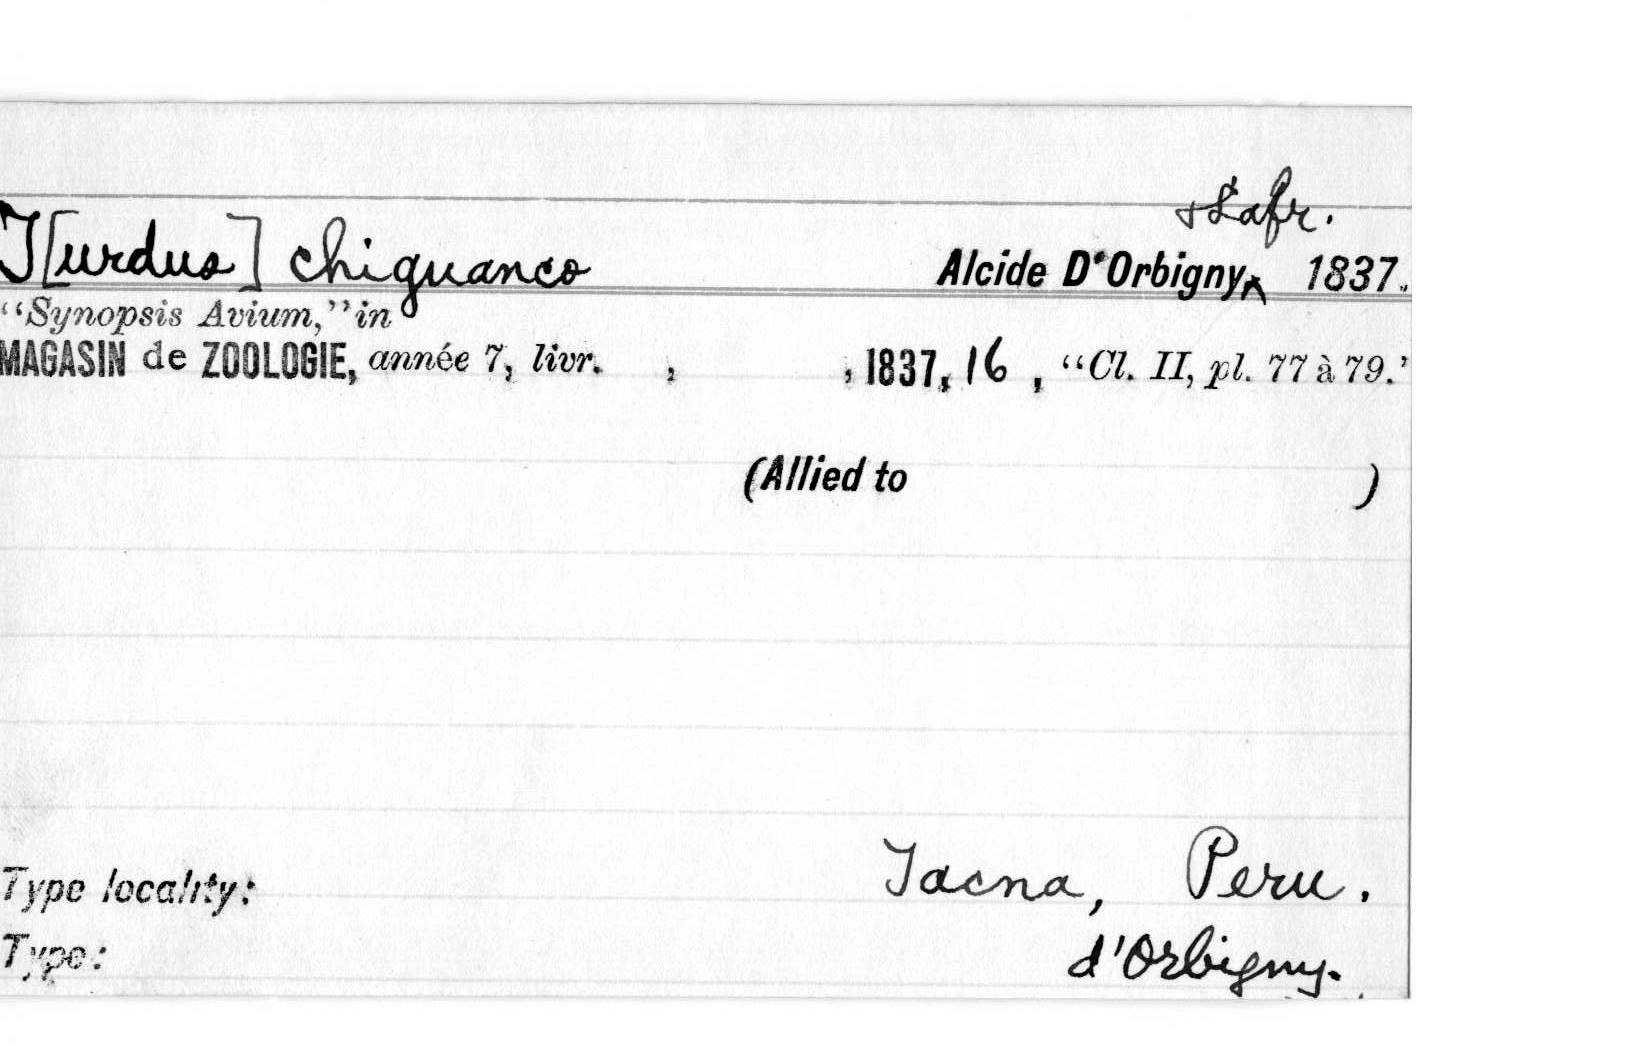 & Lafr.
T[urdus] chiguanco Alcide D'Orbigny‸ 1837.
“Synopsis Avium,” in
MAGASIN de ZOOLOGIE, année 7, livr. , , 1837, 16 , “Cl. II, pl. 77 à 79.’
(Allied to )
Type locality: Tacna, Peru.
Type: d'Orbigny.